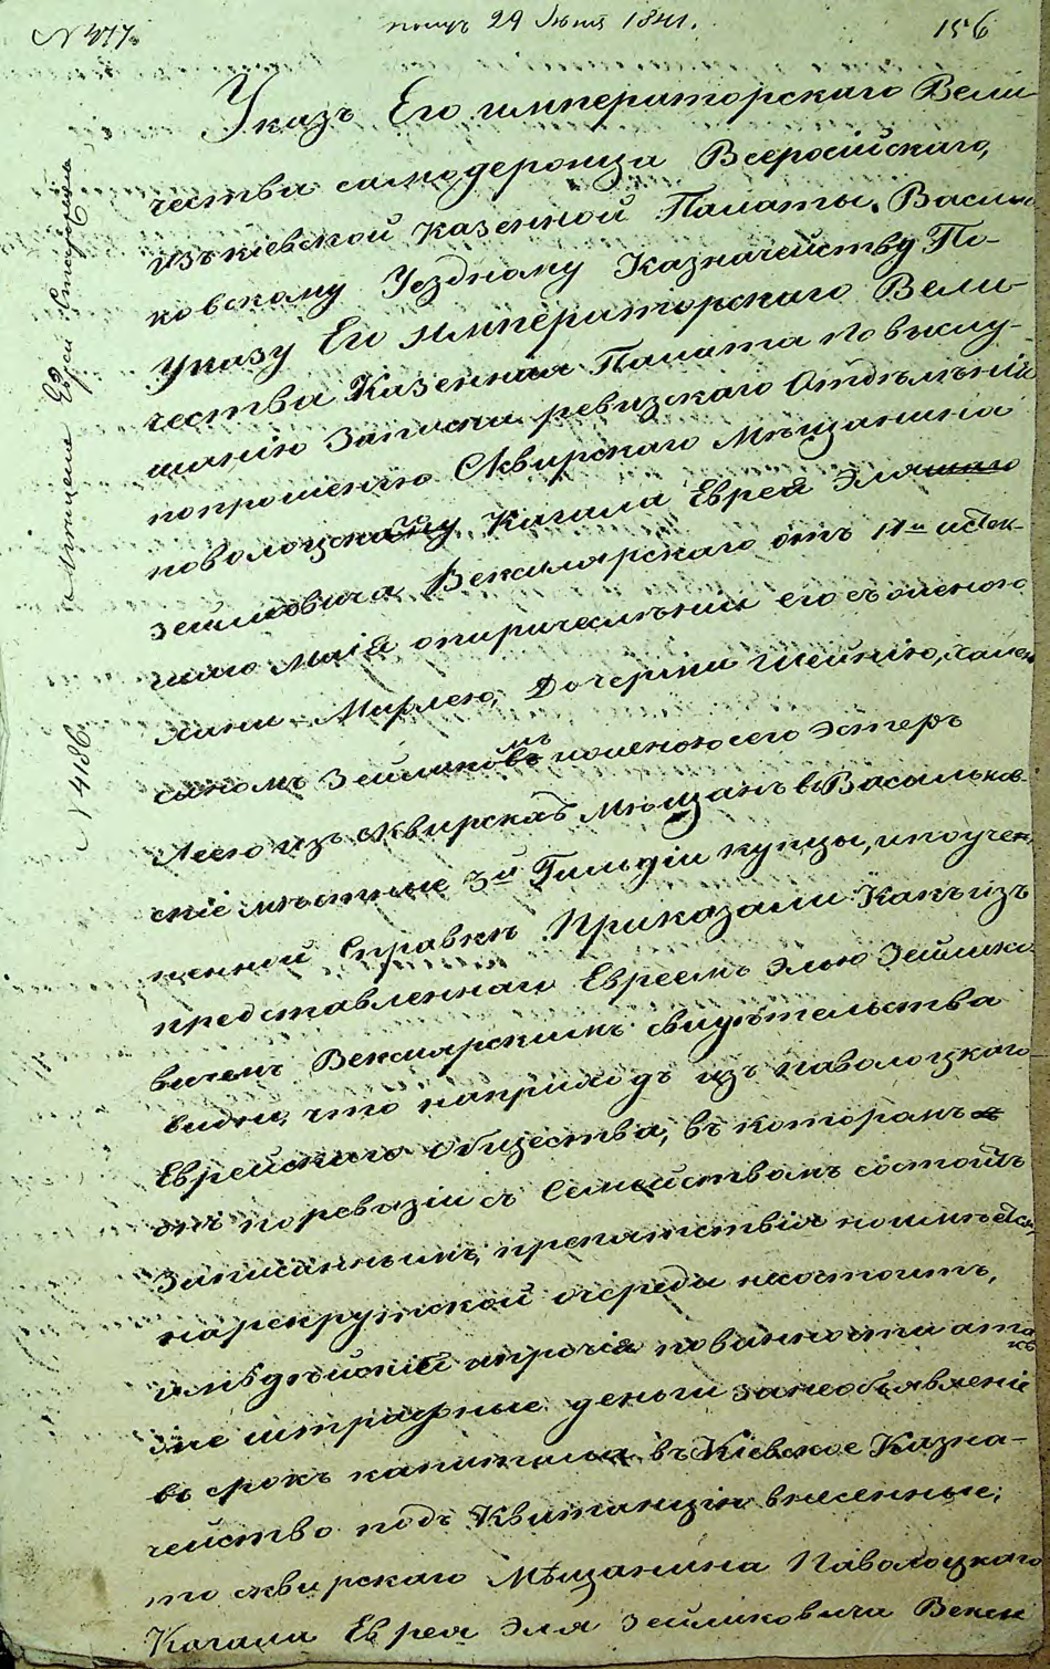 № 477.
получ 29 Июня 1841.
156
Указъ Его императорскаго Вели
чества самодержца Всеросійскаго,
изъ кіевской казенной Палаты, Василь
ковскому Уездному Казначейству По
указу Его императорскаго Вели-
чества Казенная Палата по выслу-
шанію Записки ревизскаго Отдѣленія
попрошенію Сквирскаго Мѣщанина
поволоцкому Кагала Еврея Эля
Зейликовича Векслярскаго отъ 11го истек-
шаго Маія опиричисленіи его съ женою
Мирлею, Дочерми Шейнію,
сыномъ Зейликомъ и женою сего Эстеръ
Леею изъ Сквирскихъ Мѣщанъ въ Васильков-
скіе мѣстные 3й Гильдіи купцы, и по учен
ненной Справки Приказали Какъ изъ
представленнаго Евреемъ Элью Зейлико
вичемъ Векслярскимъ свидѣтельства
видно, что наприходъ изъ паволоцкаго
Еврейскаго общества, въ которомъ
онъ поревизіи съ Семействомъ состоитъ
Записаннымъ, препятствія неимѣется,
нарекрутской очереди несостоитъ,
и прочія повинности а также
штрафные деньги занеобъявленіе
въ срокъ капитала въ Кіевское Казна-
чейство подъ Квитанцію внесенные;
то сквирскаго Мѣщанина Паволоцкаго
Кагала Еврея Эля Зейликовича Вексл
№ 4186.